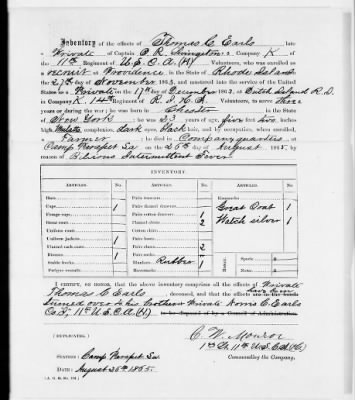 Inventory of the effects of Thomas C Earls late
a Private of Captain P. R. Livingston's Company K of
the 11th Regiment of U.S.C.A. (H) Volunteers, who was enrolled
as a recruit at Providence in the State of Rhode Island
the 27th day of November 1863, and mustered into the service of the United
States as a Private on the 17th day of December 1863, at Dutch Island R.I.
in Company K, 14th Regiment of R.I.H.A. Volunteers, to serve three
years or during the war; he was born in Chester in the State of
New York; he was 23 years of age, five feet two inches
high, Mulatto complexion, dark eyes, black hair, and by occupation, when enrolled,
Farmer; he died in Company quarters at
Camp Parapet La on the 25th day of August 1865, by
reason of Bilious Intermittent Fever.
INVENTORY
ARTICLES. No. ARTICLES. No. ARTICLES. No.
Hats
Caps 1
Forage caps
Great coats
Uniform coats
Uniform jackets 1
Blouses 1
Stable frocks
Fatigue overalls
Pairs trowsers
Pairs flannel drawers
Pairs cotton drawers 1
Flannel shirts 2
Cotton shirts
Pairs shoes 2
Pairs socks
Blankets Rubber 1
Haversacks
Knapsacks
Great Coat 1
Watch silver 1
Money. Specie $
Notes $
I CERTIFY, ON HONOR, that the above inventory comprises all the effects of Private
Thomas C Earls, deceased, and that the effects have been
turned over to his brother Private Amos E. Earls
Co. K, 11th U.S.C.A. (H) to be disposed of by a Council of Administration.
(DUPLICATE.)
C. W. Monroe
1st Lt. 11th U.S.C.A. (H)
Commanding the Company.
STATION: Camp Parapet La
DATE: August 25th 1865.